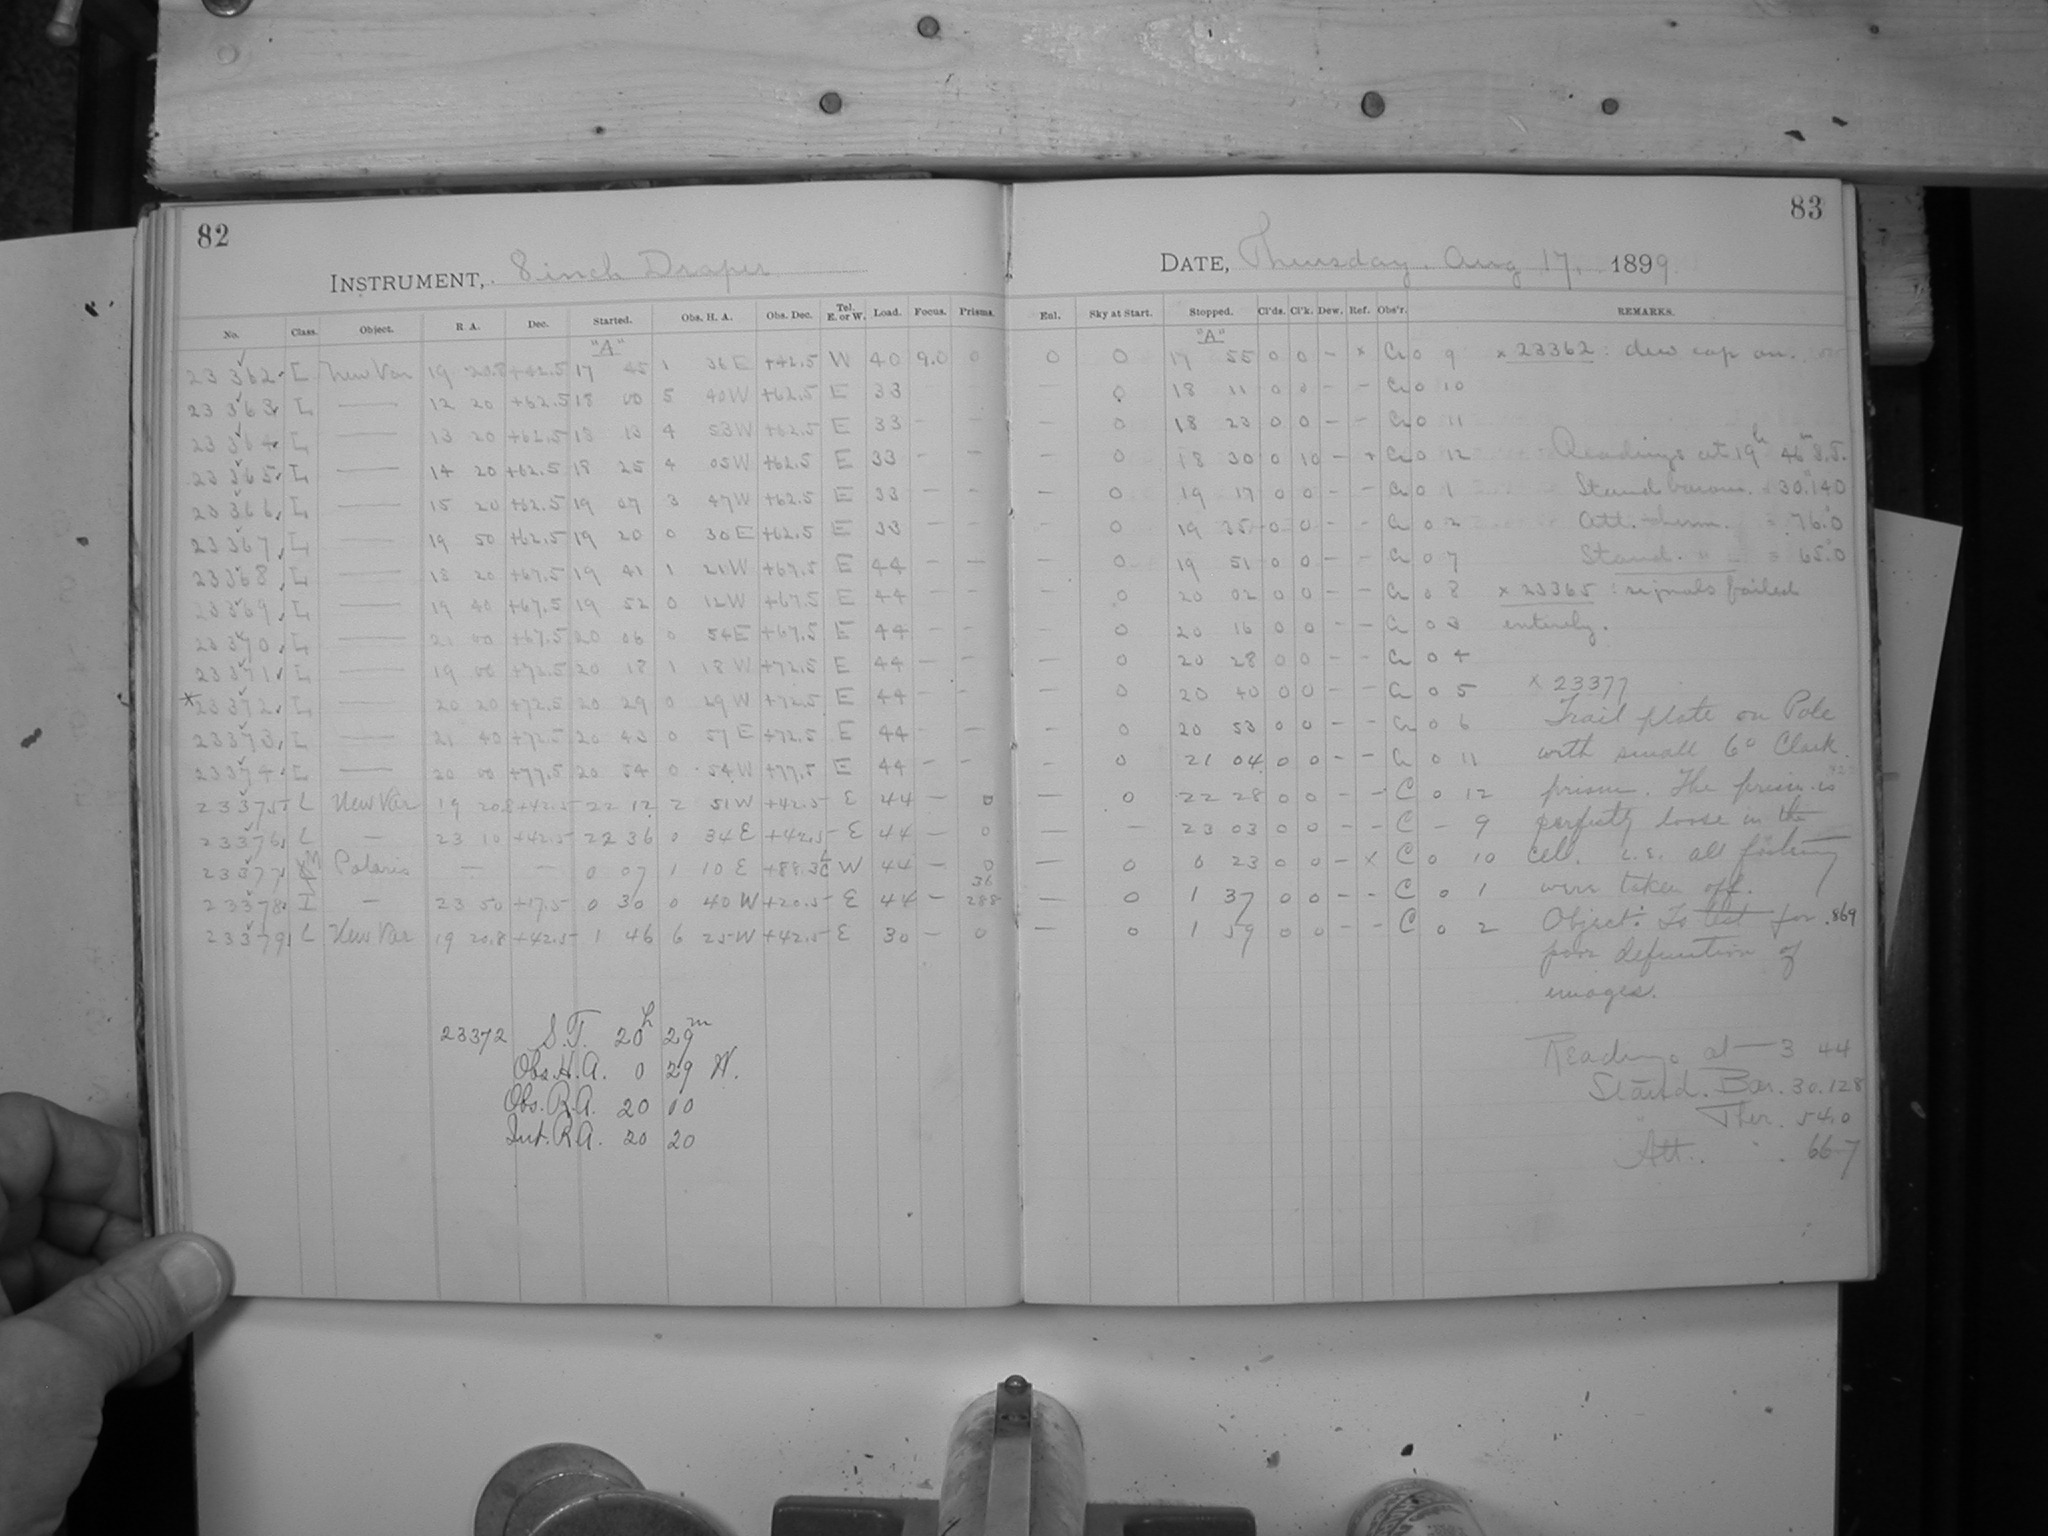 82
INSTRUMENT, 8 inch Draper
No. Class. Object. R A. Dec. Started. Obs. H. A. Obs. Dec. Tel. E. or W. Load. Focus. Prisms.
"A"
23362 L New Var 19 20.8 +42.5 17 45 1 36 E +42.5 W 40 9.0 0
23363 L — 12 20 +62.5 18 00 5 40 W +62.5 E 33
23364 L — 13 20 +62.5 18 13 4 53 W +62.5 E 33 -
23365 L — 14 20 +62.5 18 25 4 05 W +62.5 E 33 - -
23366 L — 15 20 +62.5 19 07 3 47 W +62.5 E 33 - -
23367 L — 19 50 +62.5 19 20 0 30 E +62.5 E 33 - -
23368 L — 18 20 +67.5 19 41 1 21 W +67.5 E 44 - -
23369 L — 19 40 +67.5 19 52 0 12 W +67.5 E 44 - -
23370 L — 21 00 +67.5 20 06 0 54 E +67.5 E 44 - -
23371 L — 19 00 +72.5 20 18 1 18 W +72.5 E 44 - -
* 23372 L — 20 20 +72.5 20 29 0 29 W +72.5 E 44 - -
23373 L — 21 40 +72.5 20 43 0 57 E +72.5 E 44 - -
23374 L — 20 00 +77.5 20 54 0 54 W +77.5 E 44 - -
23375 L New Var 19 20.8 +42.5 22 12 2 51 W +42.5 E 44 - 0
23376 L — 23 10 +42.5 22 36 0 34 E +42.5 E 44 - 0
23377 M Polaris — — 0 07 1 10 E W 44 - 0
36
23378 I — 23 50 +17.5 0 30 0 40 W +20.5 E 44 - 288
23379 L New Var 19 20.8 +42.5 1 46 6 25 W +42.5 E 30 - 0
23372 S.T. 20h 29m
Obs. H.A. 0 29 W.
Obs. R.A. 20 00
Int. R.A. 20 20
83
DATE, Thursday, Aug 17, 1899
Enl. Sky at Start. Stopped. Cl'ds. Cl'k. Dew. Ref. Obs'r. REMARKS.
"A"
0 0 17 55 0 0 - x G 0 9 x 23362: dew cap on.
- 0 18 11 0 0 - - G 0 10
- 0 18 23 0 0 - - G 0 11
- 0 18 30 0 10 - x G 0 12 Readings at 19h 46m S.T.
- 0 19 17 0 0 - - G 0 1 Stand barom. 30.140
- 0 19 35 0 0 - - G 0 2 Att. therm. 76.0
- 0 19 51 0 0 - - G 0 7 Stand. " 65.0
- 0 20 02 0 0 - - G 0 8 x 23365: signals failed
- 0 20 16 0 0 - - G 0 3 entirely.
- 0 20 28 0 0 - - G 0 4
- 0 20 40 0 0 - - G 0 5 x 23377
- 0 20 53 0 0 - - G 0 6 Trail plate on Pole
- 0 21 04 0 0 - - G 0 11 with small 6° Clark
- 0 22 28 0 0 - - C 0 12 prism. The prism is
- - 23 03 0 0 - - C - 9 perfectly loose in the
- 0 0 23 0 0 - x C 0 10 cell. i.e. all
- 0 1 37 0 0 - - C 0 1 were taken off.
- 0 1 59 0 0 - - C 0 2 Object: To test for .869
poor definition of
images.
Readings at — 3 44
Stand. Bar. 30.128
" Ther. 54.0
Att. " 66.7